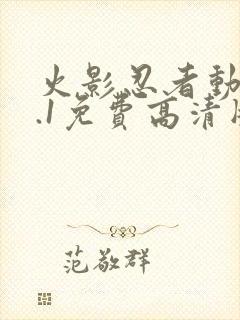 火影忍者動
.1免費高清
范敬群